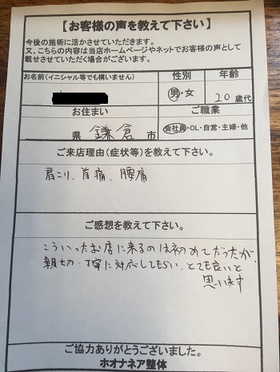 【お客様の声を教えて下さい】
今後の施術に活かさせていただきます。
又、こちらの内容は当店ホームページやネットでお客様の声として
載せさせていただく場合がございます。
お名前(イニシャル等でも構いません) 性別 年齢
男・女 20歳代
お住まい ご職業
県 鎌倉 市 会社員・OL・自営・主婦・他
ご来店理由(症状等)を教えて下さい。
肩こり、首痛、腰痛
ご感想を教えて下さい。
こういったお店に来るのは初めてだったが
親切、丁寧に対応してもらい、とても良いと
思います
ご協力ありがとうございました。
ホオナネア整体